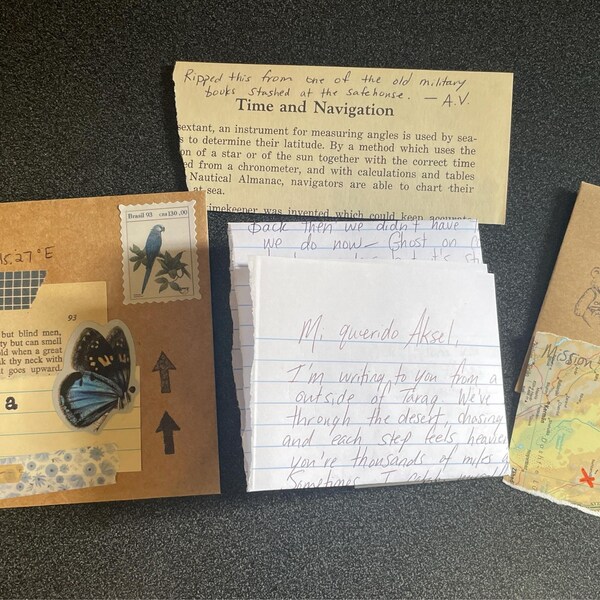 Ripped this from one of the old military
books stashed at the safehouse. — A.V.
Time and Navigation
sextant, an instrument for measuring angles is used by sea-
s to determine their latitude. By a method which uses the
on of a star or of the sun together with the correct time
ed from a chronometer, and with calculations and tables
Nautical Almanac, navigators are able to chart their
at sea.
imekeeper was invented which could keep accurate
Back then we didn't have
we do now— Ghost on
Mi querido Aksel,
I'm writing to you from a
outside of Taraq. We've
through the desert, chasing
and each step feels heavie
you're thousands of miles
Sometimes, I
Brasil 93 cr$130.00
15.27°E
93
but blind men,
ty but can smell
old when a great
k thy neck with
t goes upward.
a
Mission